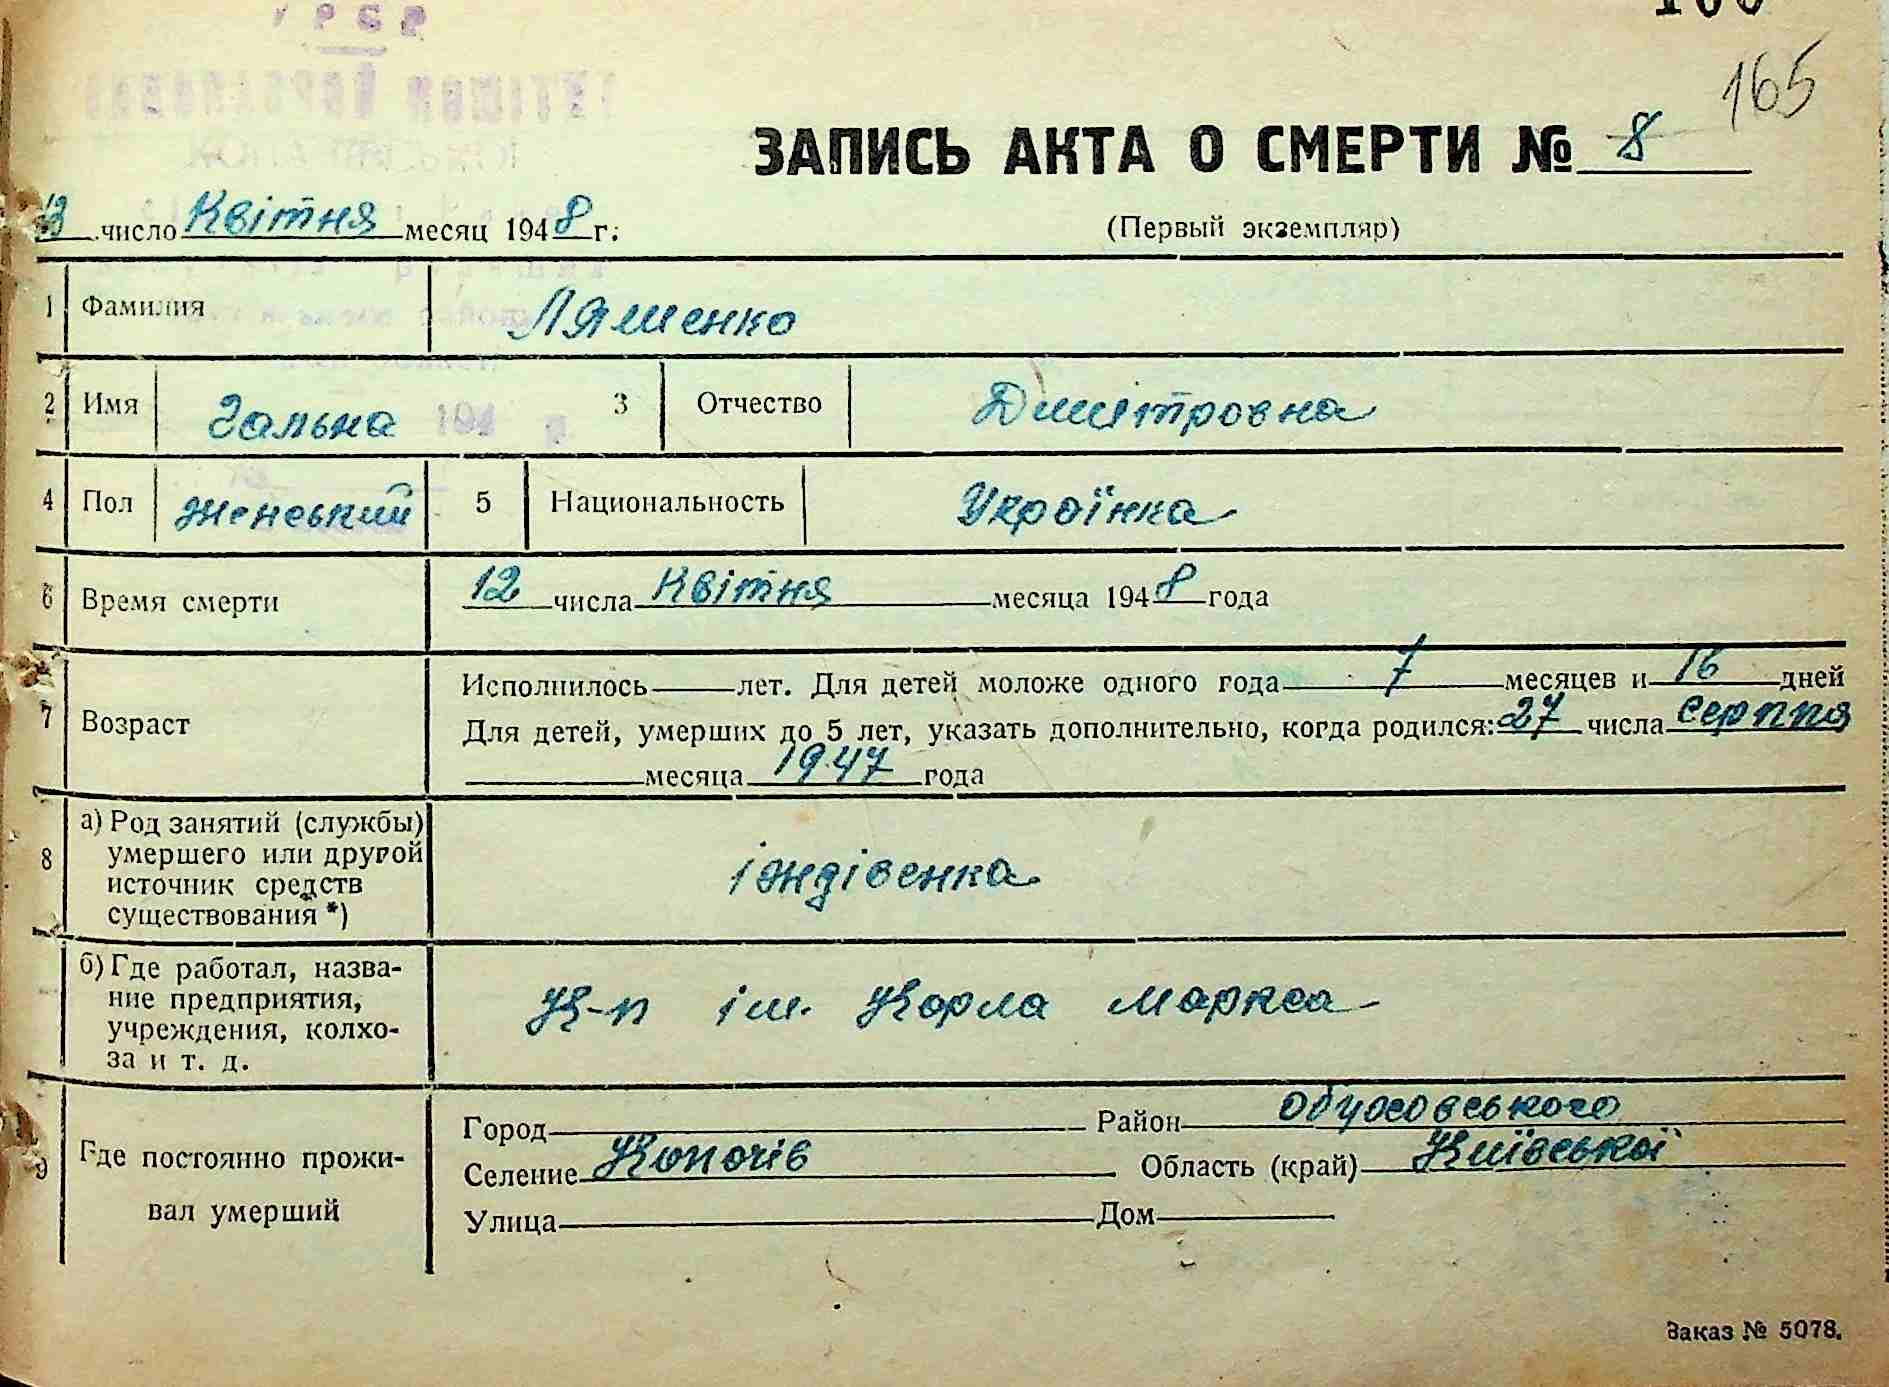 165
ЗАПИСЬ АКТА О СМЕРТИ № 8
13 число Квітня месяц 1948 г.
(Первый экземпляр)
1 Фамилия Ляшенко
2 Имя Гальна 3 Отчество Дмитровна
4 Пол женський 5 Национальность Українка
6 Время смерти 12 числа Квітня месяца 1948 года
7 Возраст
Исполнилось лет. Для детей моложе одного года 7 месяцев и 16 дней
Для детей, умерших до 5 лет, указать дополнительно, когда родился: 27 числа Серпня
месяца 1947 года
8 а) Род занятий (службы)
умершего или другой
источник средств
существования *)
іждівенка
б) Где работал, назва-
ние предприятия,
учреждения, колхо-
за и т. д.
К-п ім. Карла Маркса
9 Где постоянно прожи-
вал умерший
Город Район Обуховського
Селение Копачів Область (край) Київської
Улица Дом
Заказ № 5078.